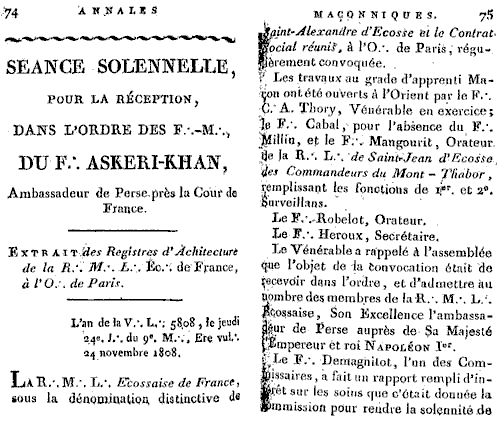 74 ANNALES
SEANCE SOLENNELLE,
POUR LA RÉCEPTION,
DANS L'ORDRE DES F∴-M∴,
DU F∴ ASKERI-KHAN,
Ambassadeur de Perse près la Cour de
France.
EXTRAIT des Registres d'Achitecture
de la R∴ M∴ L∴ Ec∴ de France,
à l'O∴ de Paris.
L'an de la V∴ L∴ 5808, le jeudi
24e. J∴ du 9e. M∴, Ere vul∴
24 novembre 1808.
LA R∴ M∴ L∴ Ecossaise de France,
sous la dénomination distinctive de
MAÇONNIQUES. 75
Saint-Alexandre d'Ecosse et le Contrat-
Social réunis, à l'O∴ de Paris, régu-
lièrement convoquée.
Les travaux au grade d'apprenti Ma-
çon ont été ouverts à l'Orient par le F∴
C. A. Thory, Vénérable en exercice;
le F∴ Cabal, pour l'absence du F∴
Millin, et le F∴ Mangourit, Orateur
de la R∴ L∴ de Saint-Jean d'Ecosse
des Commandeurs du Mont-Thabor,
remplissant les fonctions de 1er. et 2e.
Surveillans.
Le F∴ Robelot, Orateur.
Le F∴ Heroux, Secrétaire.
Le Vénérable a rappelé à l'assemblée
que l'objet de la convocation était de
recevoir dans l'ordre, et d'admettre au
nombre des membres de la R∴ M∴ L∴
Ecossaise, Son Excellence l'ambassa-
deur de Perse auprès de Sa Majesté
l'Empereur et roi NAPOLÉON Ier.
Le F∴ Demagnitot, l'un des Com-
missaires, a fait un rapport rempli d'in-
térêt sur les soins que c'était donnée la
commission pour rendre la solennité de